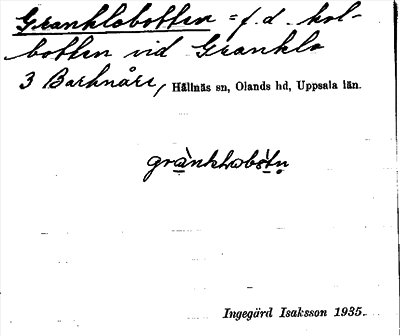 Granklobotten = f.d. kol-
botten vid Granklo
3 Barknåre, Hållnäs sn, Olands hd, Uppsala län.
grànklωbòtn̥
Ingegärd Isaksson 1935.